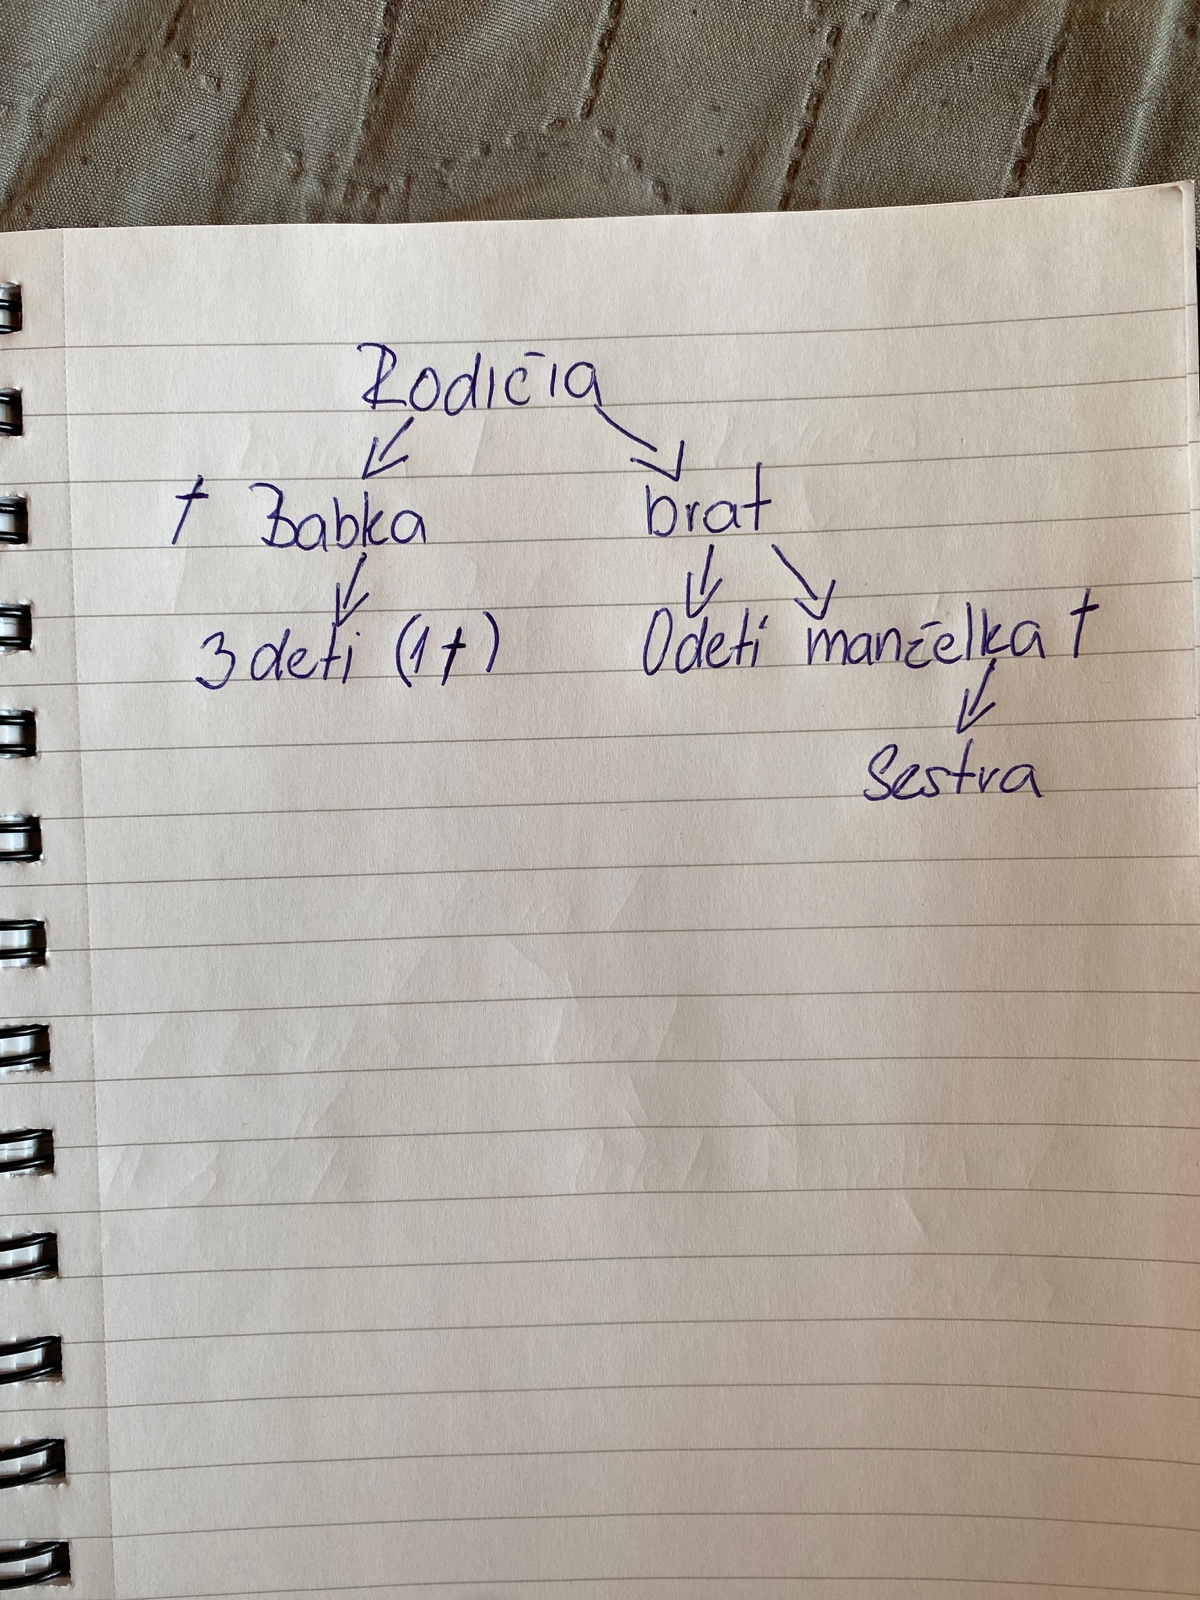 Rodičia
† Babka brat
3 deti (1†) 0 deti manželka †
Sestra